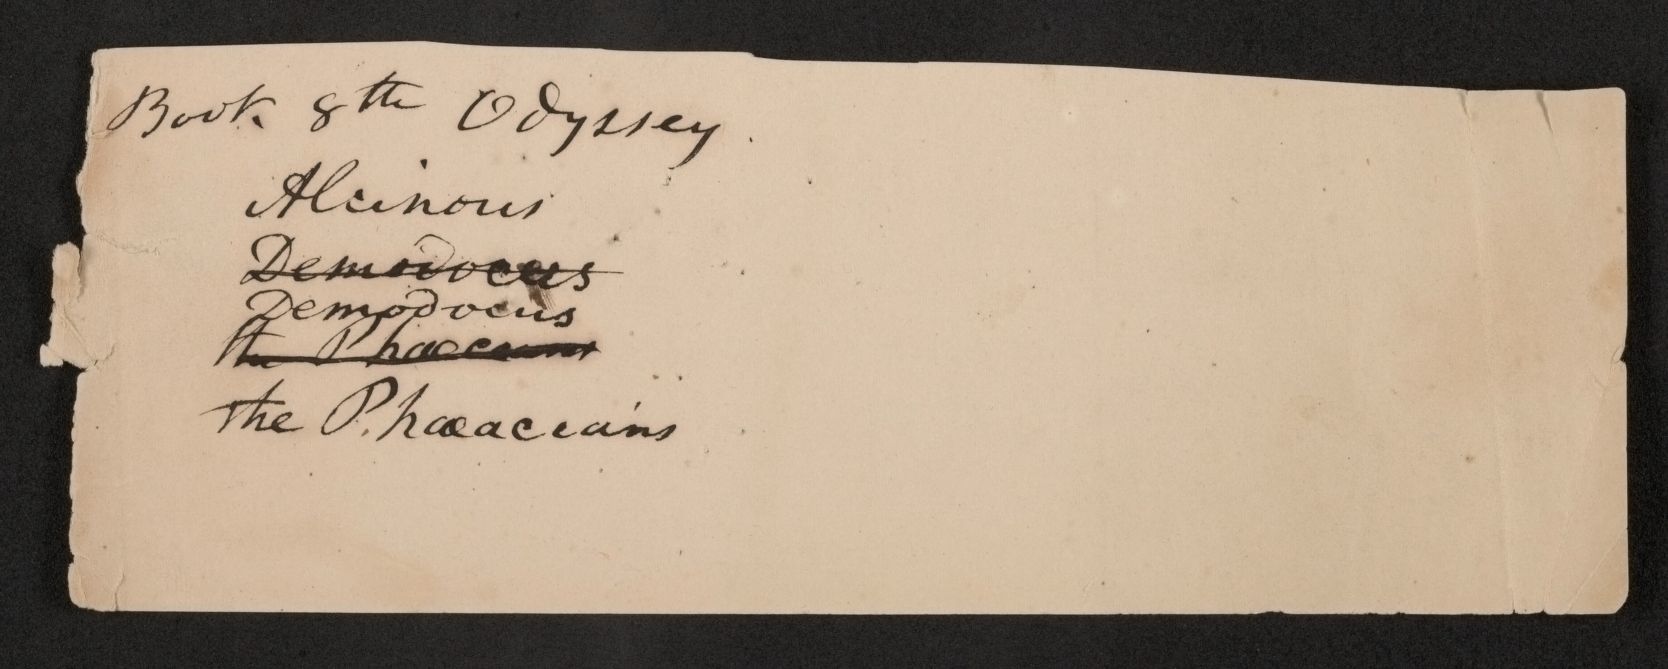 Book 8th Odyssey.
Alcinous
Demodocus
Demodocus
the Phaecians
the Phaeacians